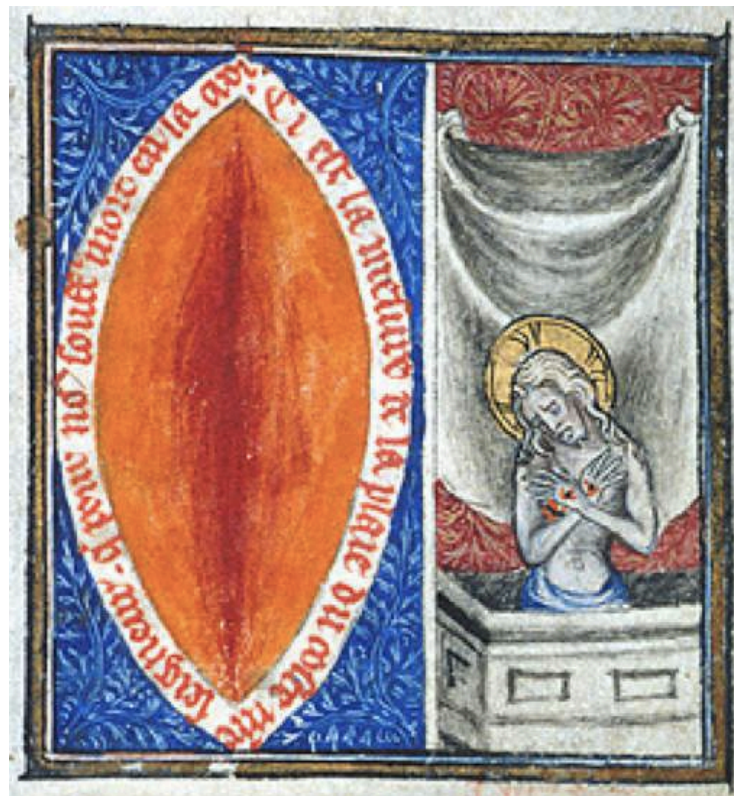 Ci est la mesure de la plaie du coste nre seigneur · q̄ pour noꝰ souff' mort en la